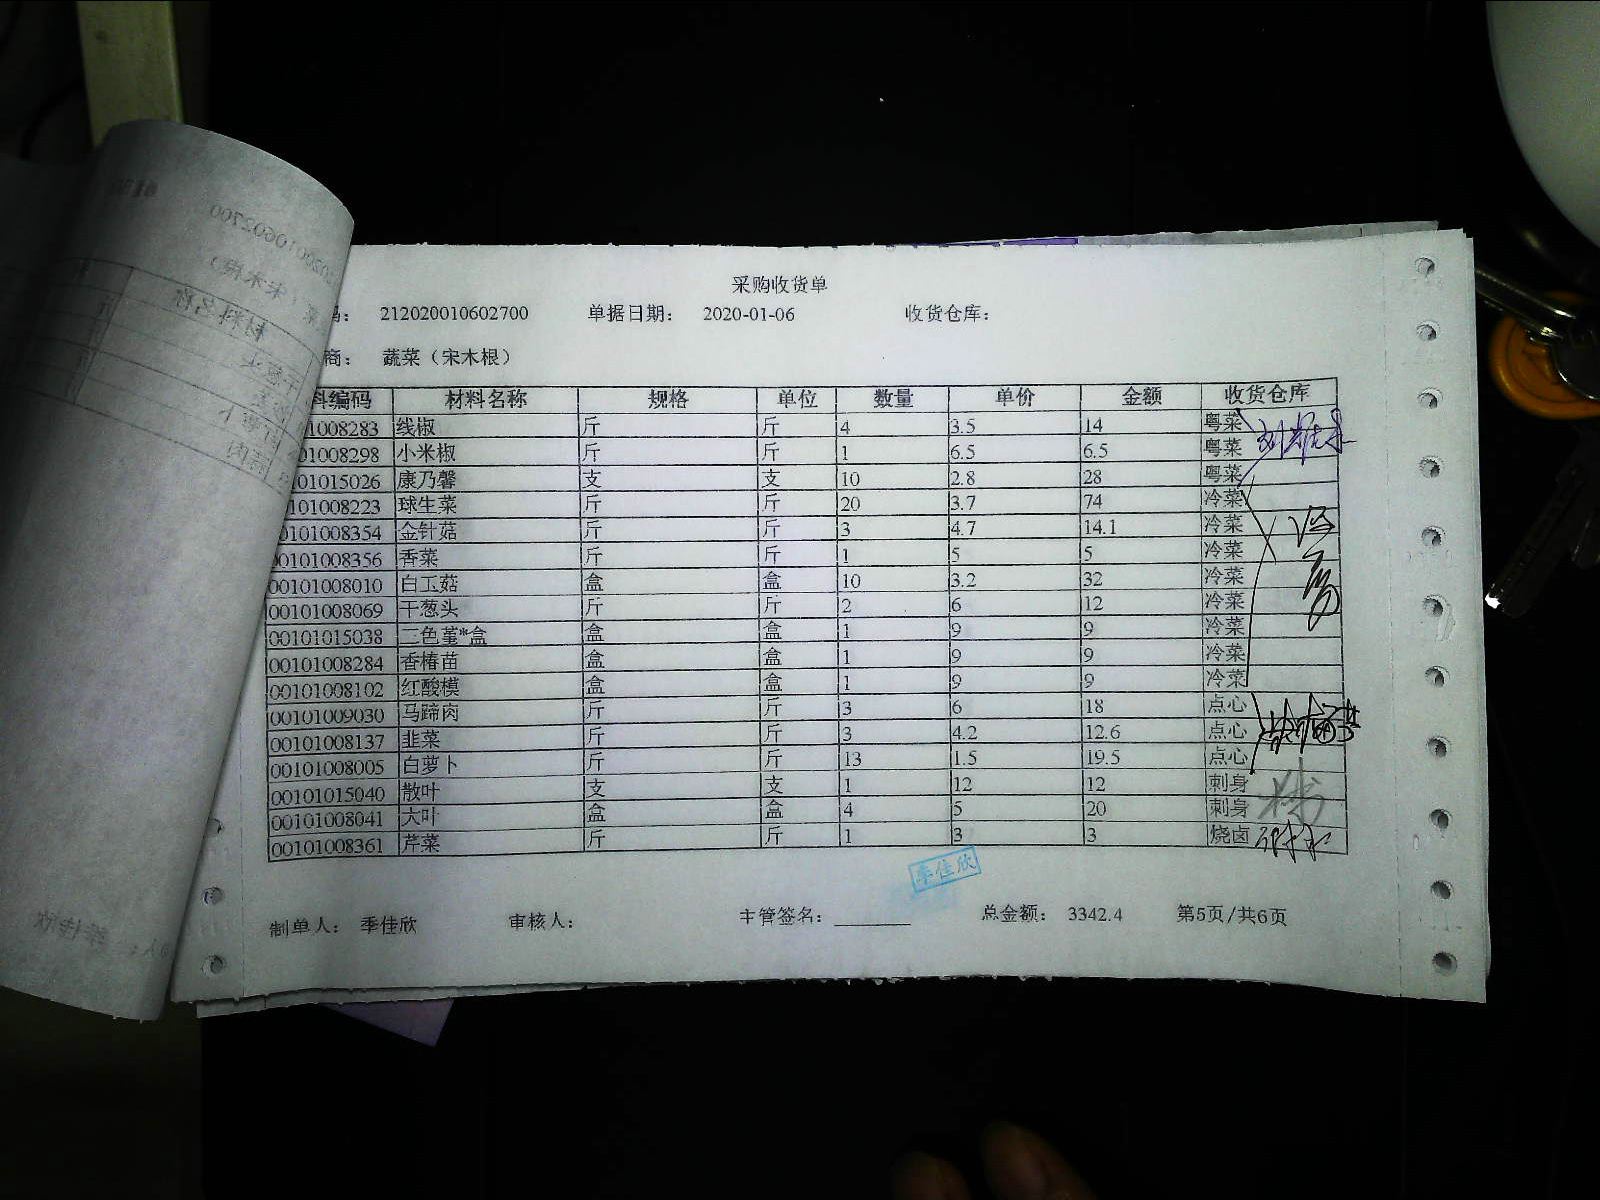 采购收货单
码: 212020010602700 单据日期: 2020-01-06 收货仓库:
商: 蔬菜（宋木根）
料编码 材料名称 规格 单位 数量 单价 金额 收货仓库
01008283 线椒 斤 斤 4 3.5 14 粤菜
01008298 小米椒 斤 斤 1 6.5 6.5 粤菜
0101015026 康乃馨 支 支 10 2.8 28 粤菜
0101008223 球生菜 斤 斤 20 3.7 74 冷菜
0101008354 金针菇 斤 斤 3 4.7 14.1 冷菜
00101008356 香菜 斤 斤 1 5 5 冷菜
00101008010 白玉菇 盒 盒 10 3.2 32 冷菜
00101008069 干葱头 斤 斤 2 6 12 冷菜
00101015038 三色堇*盒 盒 盒 1 9 9 冷菜
00101008284 香椿苗 盒 盒 1 9 9 冷菜
00101008102 红酸模 盒 盒 1 9 9 冷菜
00101009030 马蹄肉 斤 斤 3 6 18 点心
00101008137 韭菜 斤 斤 3 4.2 12.6 点心
00101008005 白萝卜 斤 斤 13 1.5 19.5 点心
00101015040 散叶 支 支 1 12 12 刺身
00101008041 大叶 盒 盒 4 5 20 刺身
00101008361 芹菜 斤 斤 1 3 3 烧卤
季佳欣
制单人: 季佳欣 审核人: 主管签名: 总金额: 3342.4 第5页/共6页